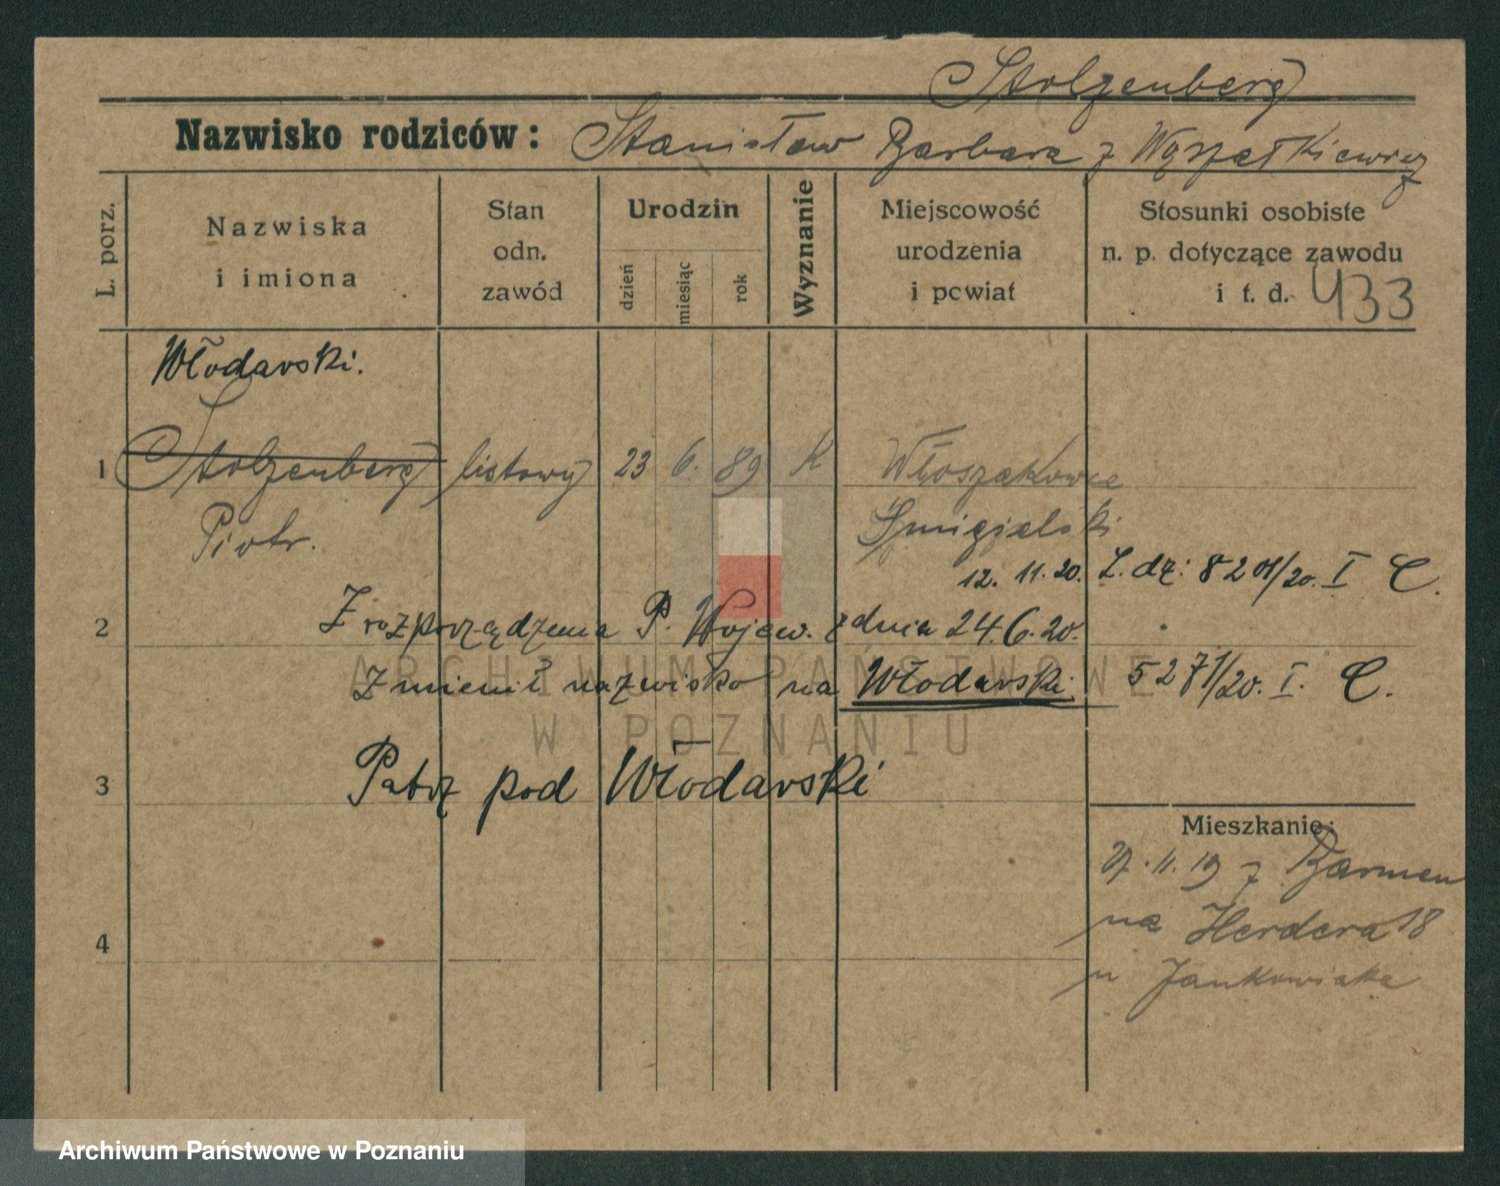 Stolzenberg
Nazwisko rodziców: Stanisław Barbara z
L. porz.
Nazwiska
i imiona
Stan
odn.
zawód
Urodzin
dzień
miesiąc
rok
Wyznanie
Miejscowość
urodzenia
i powiat
Stosunki osobiste
n. p. dotyczące zawodu
i t. d. 433
Włodarski.
1 Stolzenberg listowy 23 6. 89 K Włoszakowce
Piotr. Śmigielski
12. 11. 20. L. dz: 8201/20. I C.
2 Z rozporządzenia P. Wojew. z dnia 24.6.20.
Zmienił nazwisko na Włodarski. 5271/20. I. C.
3 Patrz pod Włodarski
Mieszkanie:
11. 19 z Barmen
na Herdera 18
4
u Jankowiaka
ARCHIWUM PAŃSTWOWE
W POZNANIU
Archiwum Państwowe w Poznaniu